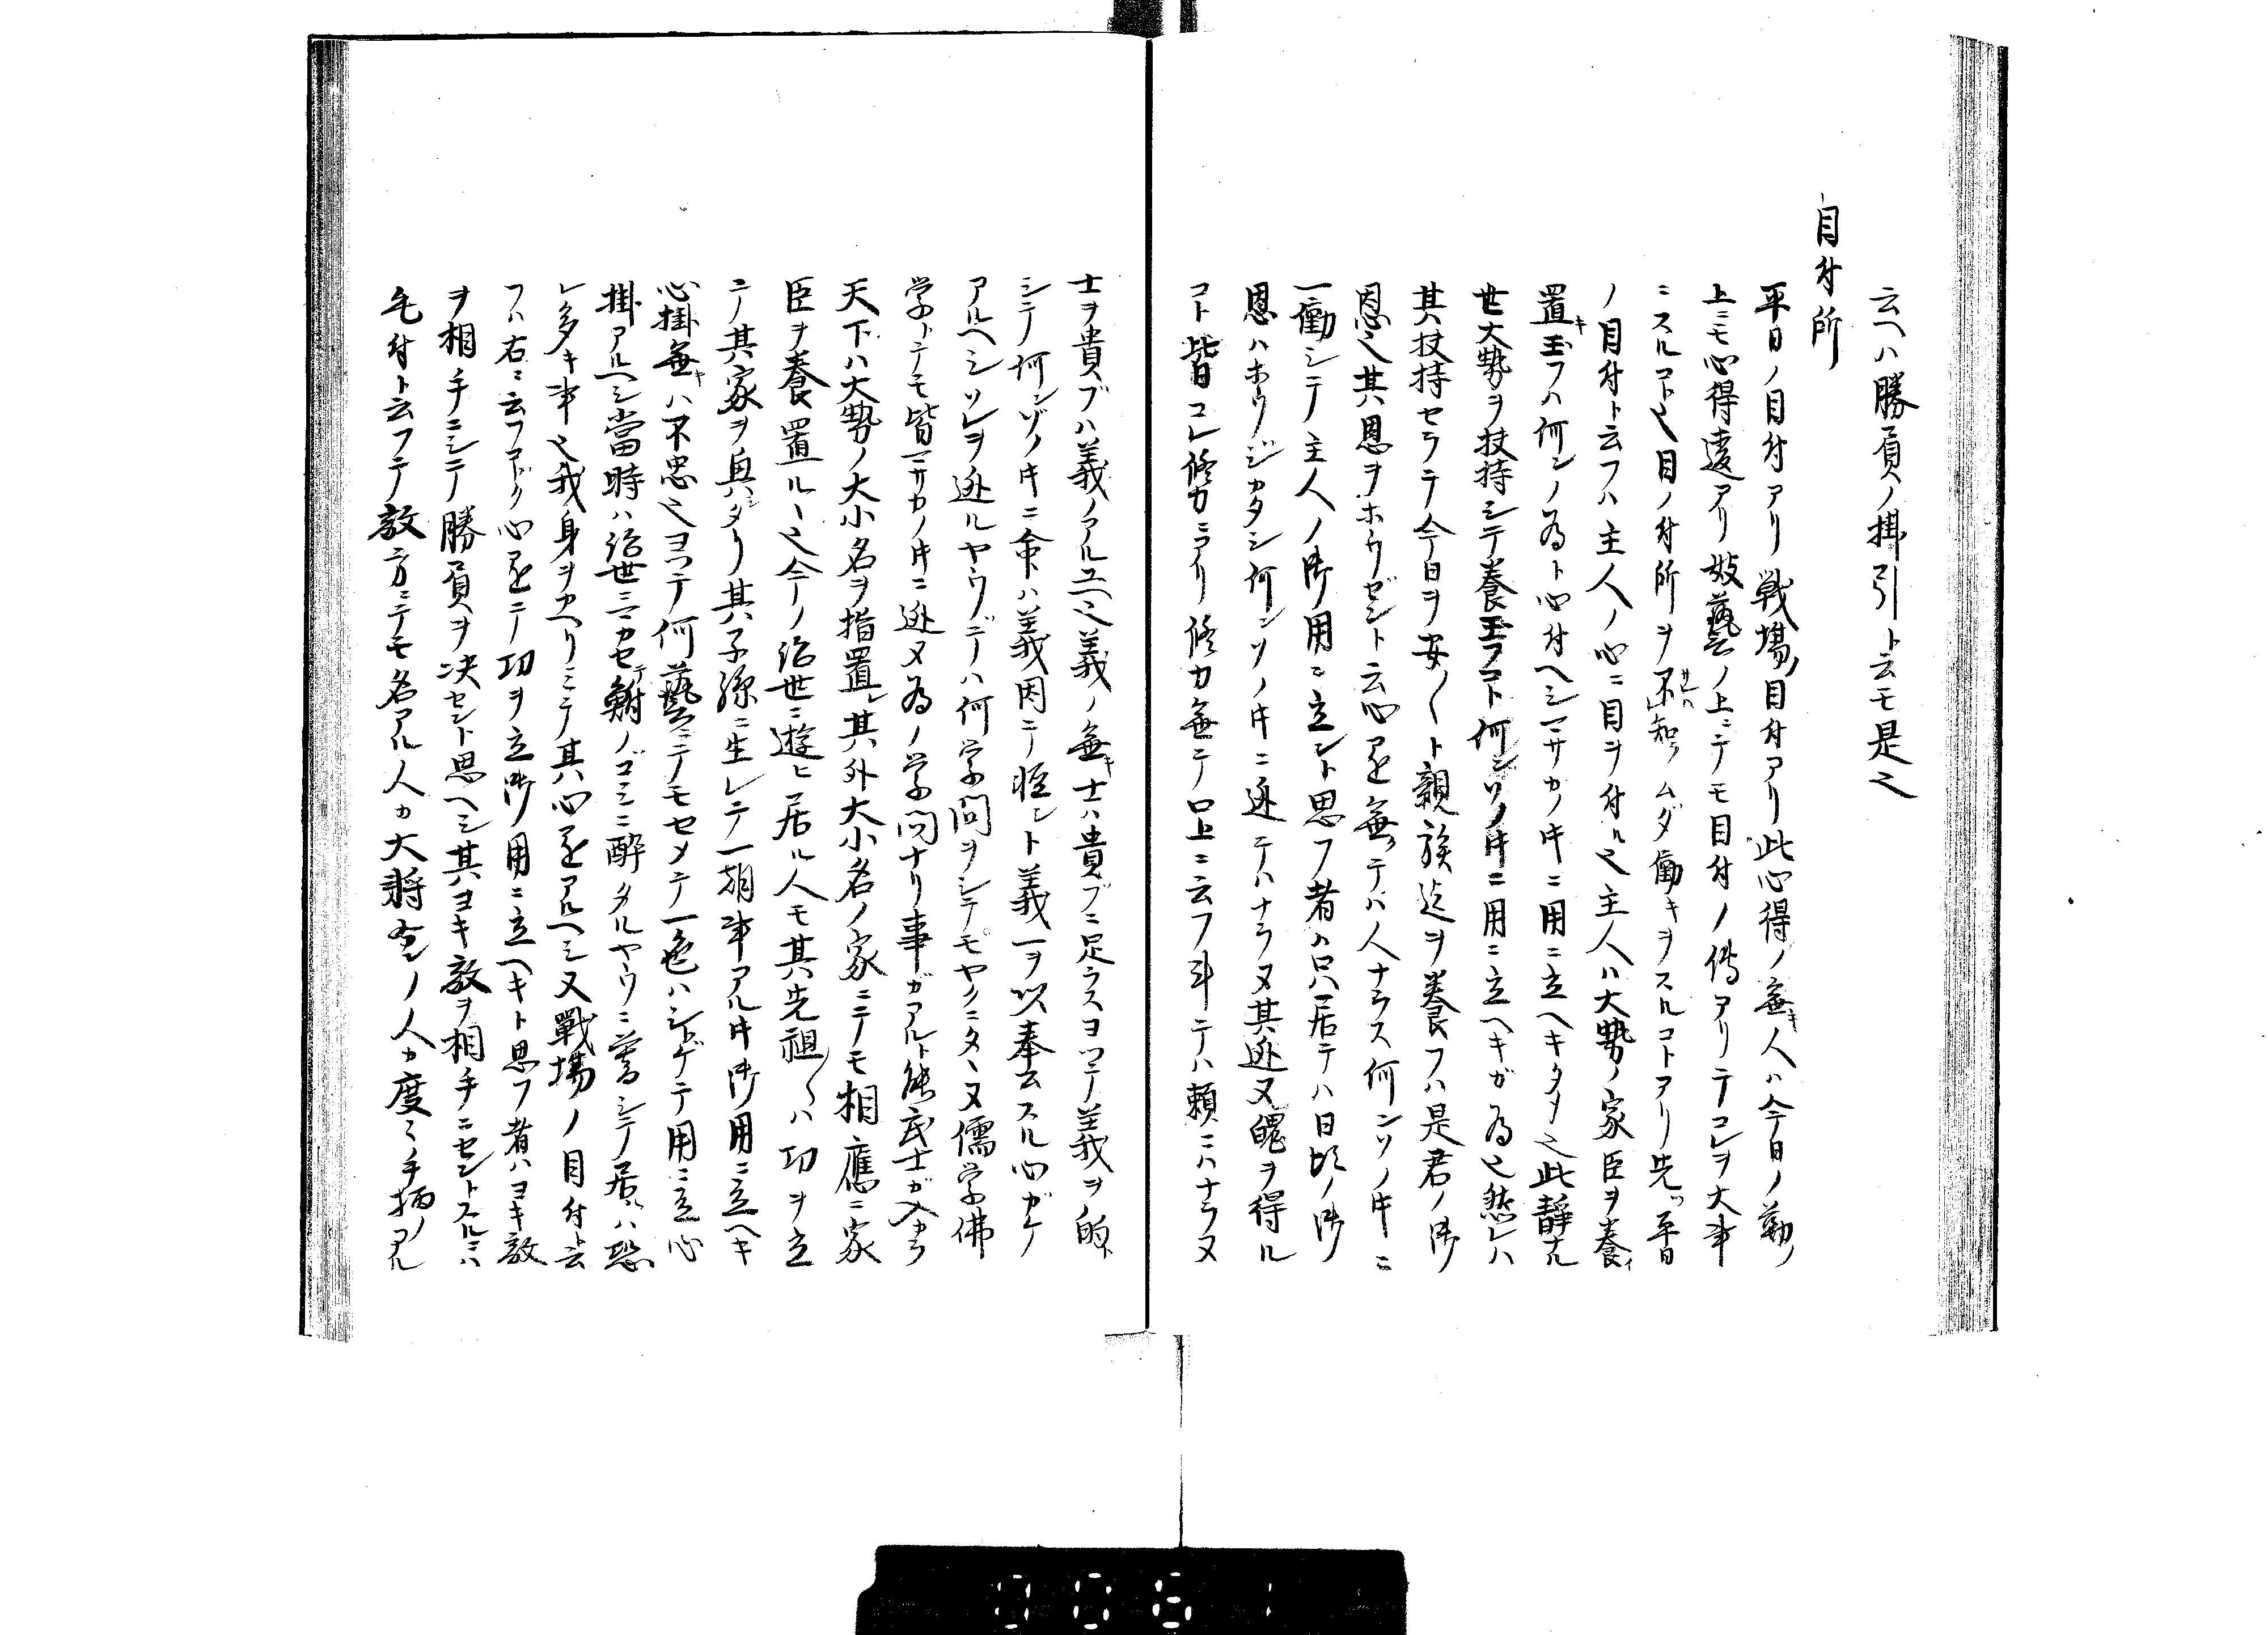 云ヘハ勝負ノ掛引ト云モ是也
目付所
平日ノ目付アリ戦場ノ目付アリ此心得ノ無キ人ハ今日ノ勤ノ
上ニモ心得違アリ妓藝ノ上ニテモ目付ノ傳アリテコレヲ大事
ニスルコト也目ノ付所ヲ不知ハムダ働キヲスルコトアリ先ツ平日
ノ目付ト云フハ主人ノ心ニ目ヲ付ル也主人ハ大勢ノ家臣ヲ養イ
置キ玉フハ何ンノ為ト心付ヘシマサカノ時ニ用ニ立ヘキタメ也此静ナル
世大勢ヲ扶持シテ養玉フコト何ンソノ時ニ用ニ立ヘキガ為也然レハ
其扶持セラテ今日ヲ安〱ト親族迄ヲ養フハ是君ノ御
恩也其恩ヲホウゼント云心掛無テハ人ナラス何ンソノ時ニ
一働シテ主人ノ御用ニ立ント思フ者ハ只居テハ日比ノ御
恩ハホウジカタシ何ンソノ時ニ逃テハナラヌ其逃ヌ魂ヲ得ル
コト皆コレ修力ニアリ修力無テ口上ニ云フ斗テハ頼ニハナラヌ
士ヲ貴ブハ義ノアルユヘ也義ノ無キ士ハ貴ブニ足ラスヨツテ義ヲ的ト
シテ何ンゾノ時ニ命ハ義因テ軽シト義一ヲ以奉公スル心ガケ
アルヘシソレヲ逃ルヤウノデハ何学問ヲシテモヤクニタヽヌ儒学佛
学トテモ皆マサカノ時ニ逃ヌ為ノ学問ナリ事ガアルト能武士ガ入カラ
天下ハ大勢ノ大小名ヲ指置レ其外大小名ノ家ニテモ相應ニ家
臣ヲ養置ル也今ノ治世ニ遊ヒ居ル人モ其先祖〱ハ功ヲ立
テ其家ヲ興シタリ其子孫ニ生レテ一朝事アル時御用ニ立ヘキ
心掛無キハ不忠也ヨツテ何藝ニテモセメテ一色ハシトゲテ用ニ立心
掛アルヘシ當時ハ治世ニマカセテ鮒ノゴミニ酔タルヤウニ暮シテ居ルハ恐
レ多キ事也我身ヲカヘリミテ其心掛アルヘシ又戰場ノ目付ト云
フハ右ニ云フコトク心掛テ功ヲ立御用ニ立ヘキト思フ者ハヨキ敵
ヲ相手ニシテ勝負ヲ決セント思ヘシ其ヨキ敵ヲ相手ニセントスルニハ
毛付ト云フテ敵方ニテモ名アル人カ大將分ンノ人カ度〻手柄ノアル